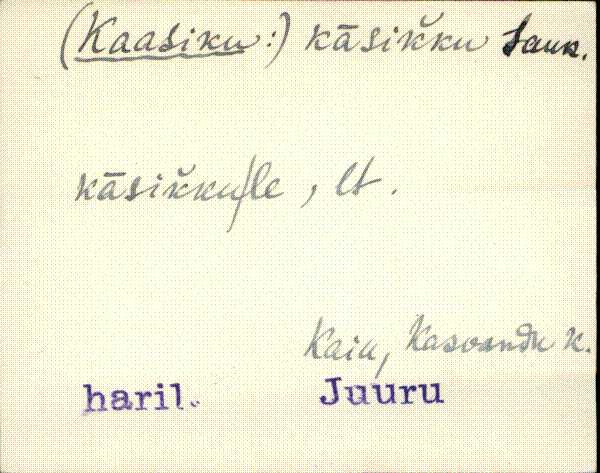 (Kaasiku:) kāsik̆ku
kāsik̆ku/le, lt.
Kaiu, Kasvandu k.
haril. Juuru